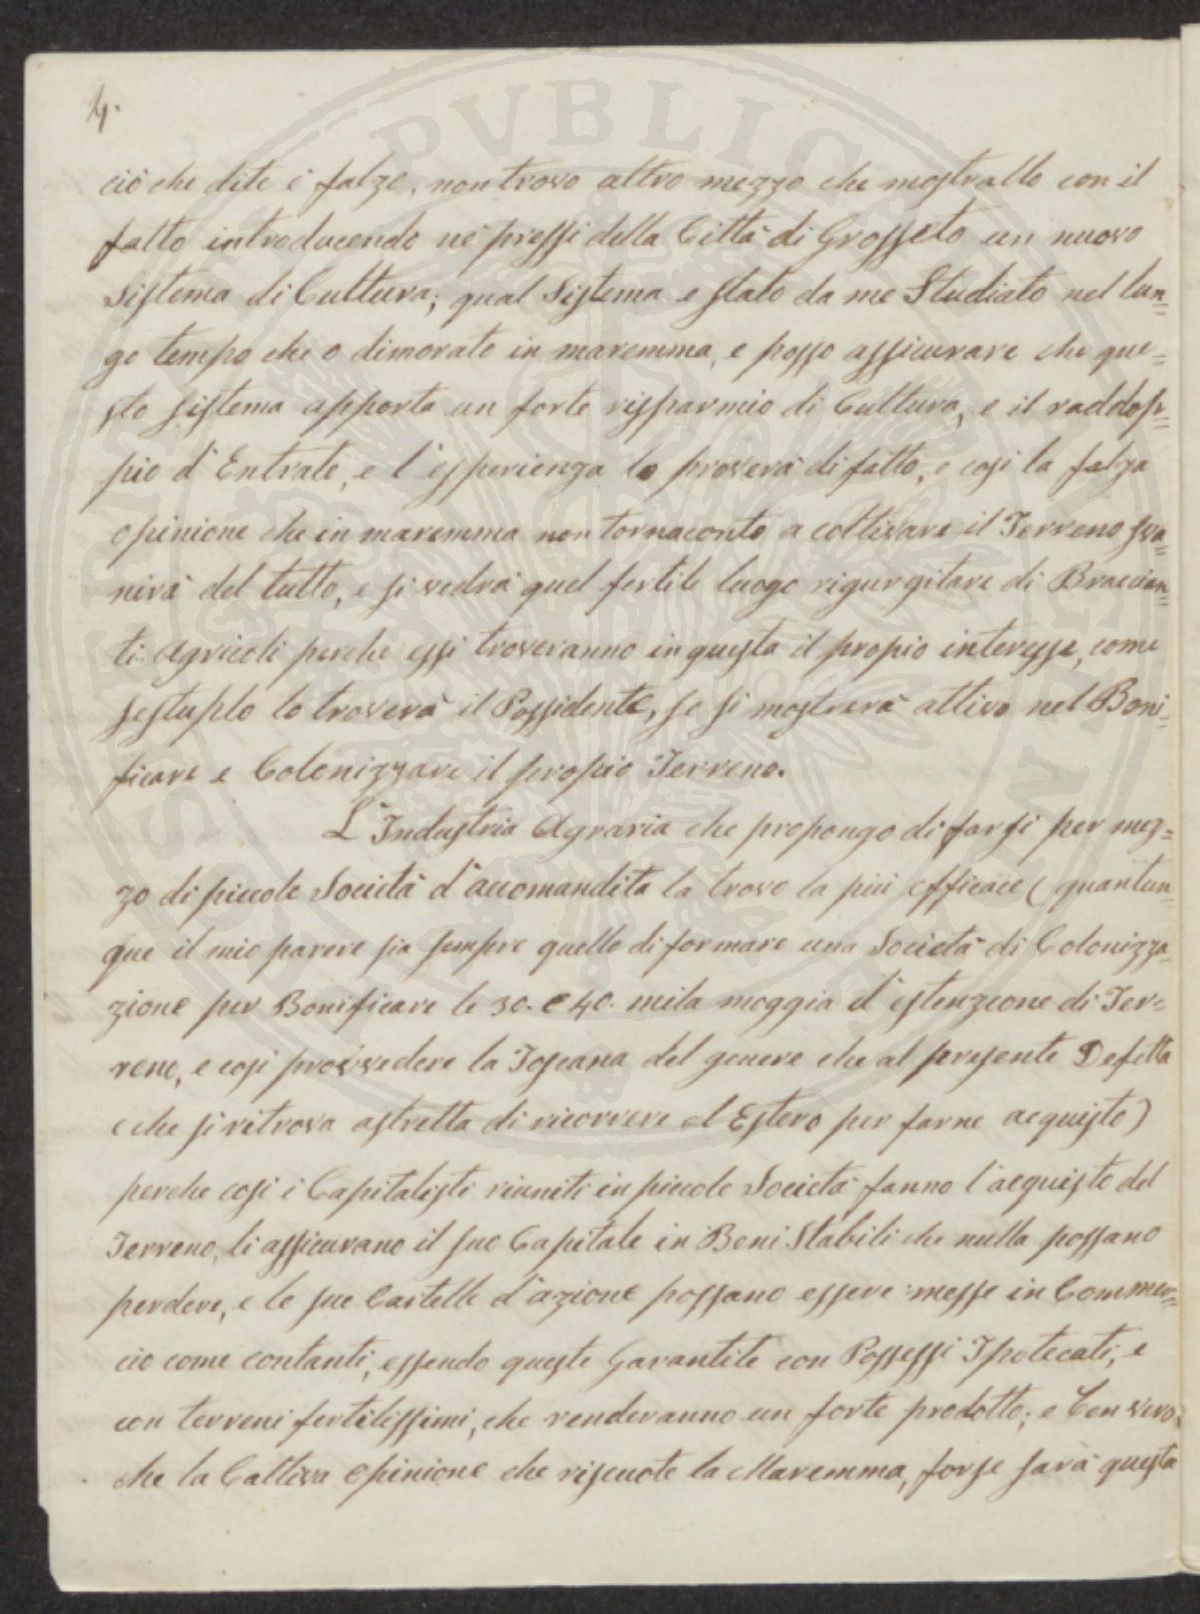 4.
ciò che dite è falzo, non trovo altro mezzo che mostrallo con il
fatto introducendo nè pressi della Città di Grosseto un nuovo
Sistema di Cultura; qual Sistema e stato da me Studiato nel lun=
go tempo che o dimorato in maremma, e posso assicurare che que=
sto Sistema apporta un forte risparmio di Cultura, e il raddop=
pio d'Entrate, e l'esperienza lo proverà di fatto, e così la falza
opinione che in maremma non tornaconto a coltivare il Terreno sva=
nirà del tutto, e si vedrà quel fertile luogo rigurgitare di Braccian=
ti Agricoli perche essi troveranno in questa il propio interesse, come
sestuplo lo troverà il Possidente, se si mostrerà attivo nel Boni=
ficare e Colonizzare il propio Terreno.
L'Industria Agraria che propongo di farsi per mez=
zo di piccole Società d'accomandita la trovo la più efficace (quantun
que il mio parere sia sempre quello di formare una Società di Colonizza=
zione per Bonificare le 30. e 40. mila moggia d'estenzione di Ter=
reno, e così provvedere la Toscana del genere che al presente Defetta
e che si ritrova astretta di ricorrere al Estero per farne acquisto)
perche così i Capitalisti riuniti in piccole Società fanno l'acquisto del
Terreno, li assicurano il suo Capitale in Beni Stabili che nulla possano
perdere, e le sue Cartelle d'azione possano essere messe in Commer=
cio come contanti, essendo queste Garantite con Possessi Ipotecati, e
con terreni fertilissimi, che renderanno un forte prodotto; e ben vero
che la Cattiva Opinione che riscuote la Maremma, forse sarà questa